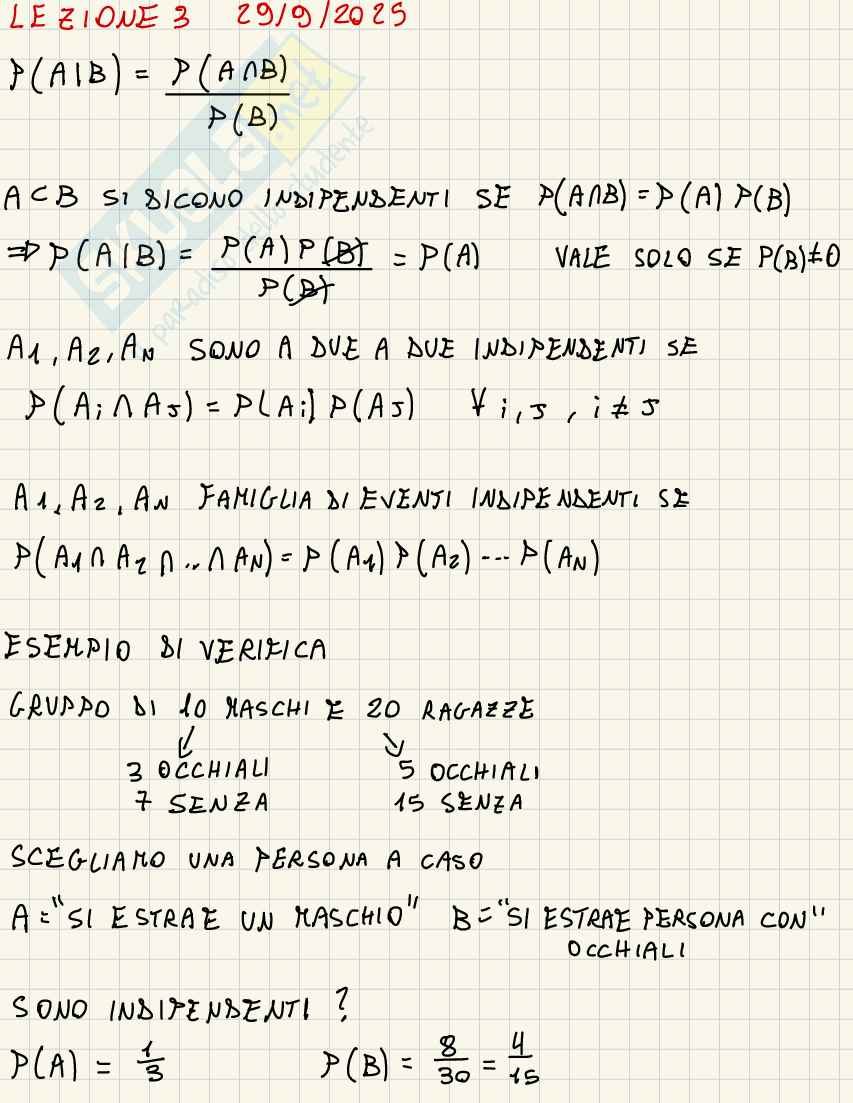 LEZIONE 3 29/9/2025
P(A|B) = P(A∩B)
P(B)
A E B SI DICONO INDIPENDENTI SE P(A∩B) = P(A) P(B)
⇒ P(A|B) = P(A) P(B) = P(A) VALE SOLO SE P(B)≠0
P(B)
A1, A2, AN SONO A DUE A DUE INDIPENDENTI SE
P(Ai ∩ AJ) = P(Ai) P(AJ) ∀ i, J, i ≠ J
A1, A2, AN FAMIGLIA DI EVENTI INDIPENDENTI SE
P(A1 ∩ A2 ∩ .. ∩ AN) = P(A1) P(A2) --- P(AN)
ESEMPIO DI VERIFICA
GRUPPO DI 10 MASCHI E 20 RAGAZZE
3 OCCHIALI 5 OCCHIALI
7 SENZA 15 SENZA
SCEGLIAMO UNA PERSONA A CASO
A = "SI ESTRAE UN MASCHIO" B = "SI ESTRAE PERSONA CON"
OCCHIALI
SONO INDIPENDENTI ?
P(A) = 1/3 P(B) = 8/30 = 4/15
SKUOLA.net
paradiso dello studente